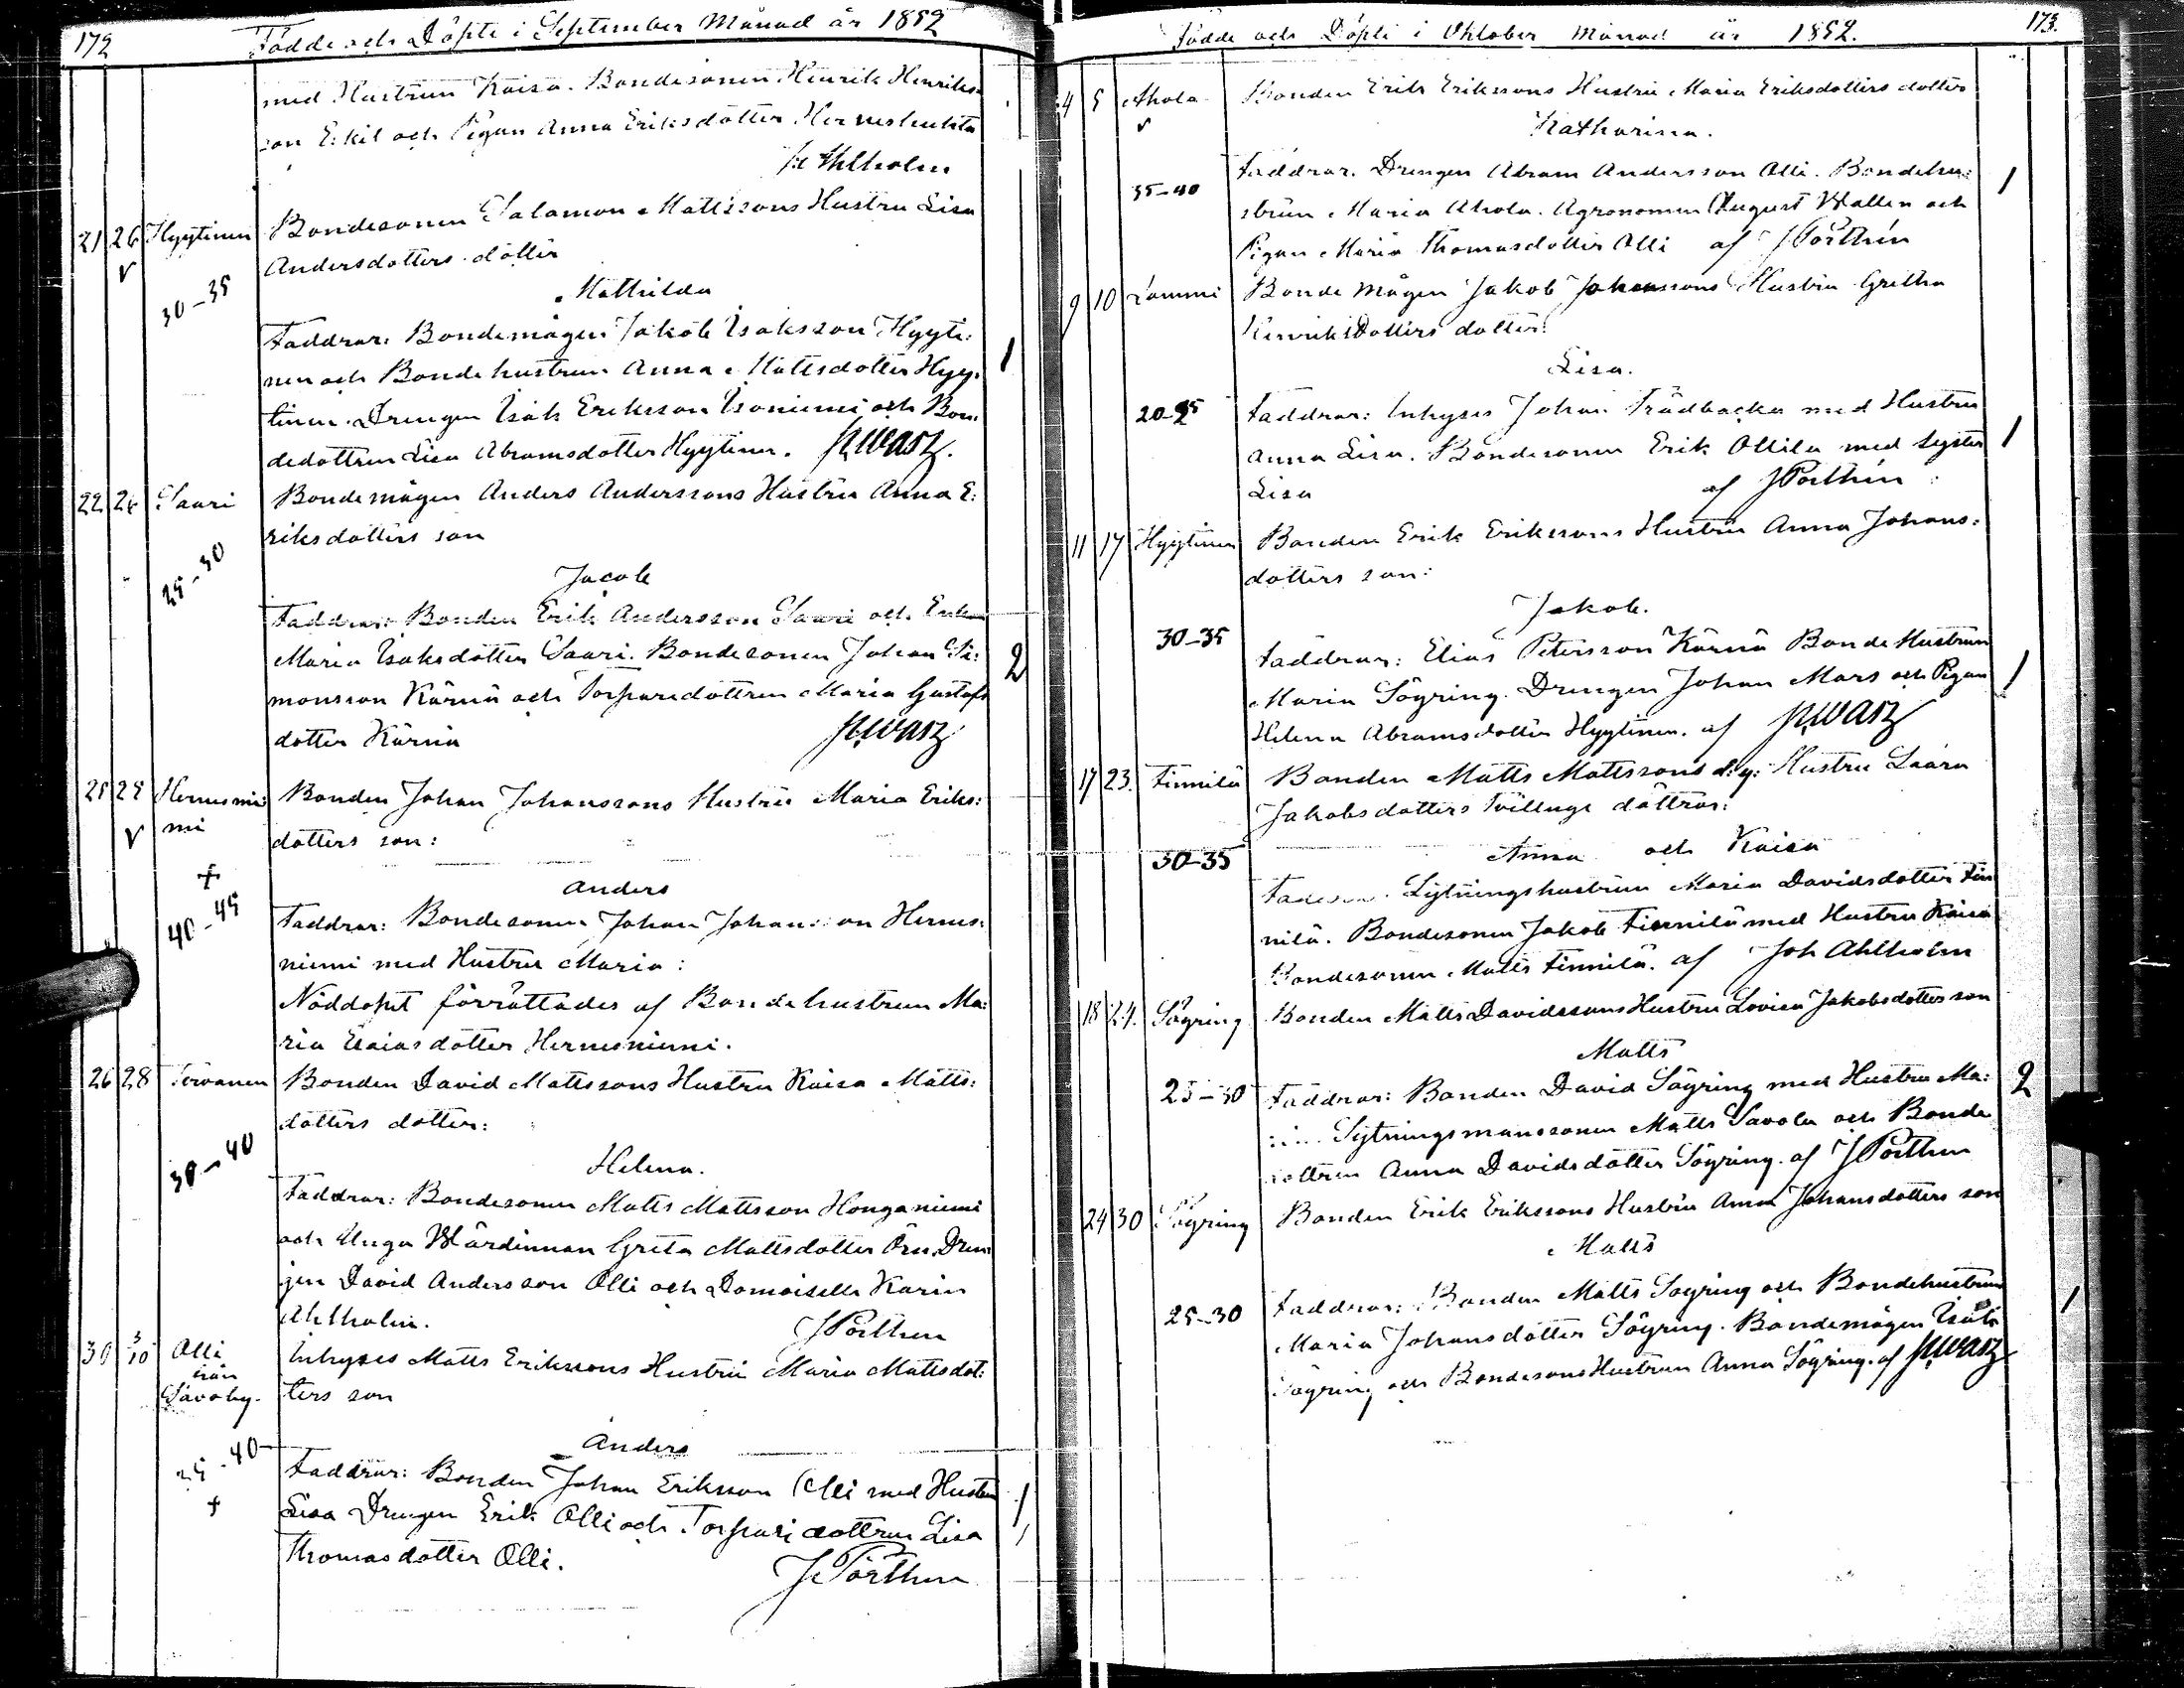 172
Födde och Döpte i September Månad år 1852
med Hustrun Kaisa. Bondesonen Henrik Henriks:
son Eskil och Pigan Anna Eriksdotter
Ahlholm
21 26 Hyytinen Bondesonen Salamon Mattssons Hustru Lisa
Andersdotters dotter
30-35
Mathilda
Faddrar: Bondemågen Jakob Isaksson Hyyti:
nen och Bondehustrun Anna Mattsdotter Hyy:
tinen. Drengen Isak Eriksson Isoniemi och Bon:
dedottren Lisa Abramsdotter Hyytinen. Schwartz.
1
22 26 Saari Bondemågen Anders Anderssons Hustru Anna E:
riksdotters son
25-30
Jacob
Faddrar: Bonden Erik Andersson Saari och Enkan
Maria Isaksdotter Saari. Bondesonen Johan Si:
monsson Kärnä och Torparedottren Maria Gustafs
dotter Kärnä Schwartz
2
25 28 Hernesnie:
mi
Bonden Johan Johanssons Hustru Maria Eriks:
dotters son:
+
40-45
Anders
Faddrar: Bondesonen Johan Johansson Hernes:
niemi med Hustru Maria:
Nöddopet förrättades af Bondehustrun Ma:
ria Esaiasdotter Hernesniemi.
26 28 Tervanen Bonden David Mattssons Hustru Kaisa Matts:
dotters dotter:
30-40
Helena.
Faddrar: Bondesonen Matts Mattsson Honganiemi
och Unga Wärdinnan Greta Mattsdotter Dren:
gen David Andersson Olli och Domoiselle Karin
Ahlholm. J Porthen
30 3/10 Olli
från
Savoby.
Inhyses Matts Erikssons Hustru Maria Mattsdot:
ters son
35-40
+
Anders
Faddrar: Bonden Johan Eriksson Olli med Hustru
Lisa Drengen Erik Olli och Torparedottren Lisa
Thomasdotter Olli.
J Porthen
1
Födde och Döpte i Oktober Månad år 1852.
173.
4 5 Ahola Bonden Erik Erikssons Hustru Maria Eriksdotters dotter
Katharina.
35-40
Faddrar. Drengen Abram Andersson Olli. Bondehu:
strun Maria Ahola. Agronomen August Wallen och
Pigan Maria Thomasdotter Olli af J Porthén
1
9 10 Lammi Bonde Mågen Jakob Johanssons Hustru Gretha
Henriksdotters dotter:
Lisa.
20-25
Faddrar: Inhyses Johan Trädbacka med Hustru
Anna Lisa. Bondesonen Erik Ollila med Syster
Lisa af J Porthén
1
11 17 Hyytinen Bonden Erik Erikssons Hustru Anna Johans:
dotters son:
Jakob.
30-35
Faddrar: Elias Petersson Kärnä Bonde Hustrun
Maria Sögring. Drengen Johan Mars och Pigan
Helena Abramsdotter Hyytinen. af Schwartz
1
17 23. Finnilä Bonden Matts Mattssons d:y: Hustru Laara
Jakobsdotters Tvillinge döttrar:
30-35
Anna och Kaisa
Sytningshustrun Maria Davidsdotter Fin
nilä. Bondesonen Jakob Finnilä med Hustru Kaisa
Bondesonen Matts Finnilä. af Joh Ahlholm
18 24. Sögring Bonden Matts Davidssons Hustru Lovisa Jakobsdotters son
Matts
25-30
Faddrar: Bonden David Sögring med Hustru Ma:
ria. Sytningsmanssonen Matts Savola och Bonde
dottren Anna Davidsdotter Sögring. af J Porthen
2
24 30 Sögring Bonden Erik Erikssons Hustru Anna Johansdotters son
Matts
25-30
Faddrar: Bonden Matts Sögring och Bondehustrun
Maria Johansdotter Sögring. Bondemågen Isak
Sögring och Bondesons Hustrun Anna Sögring. af Schwartz
1